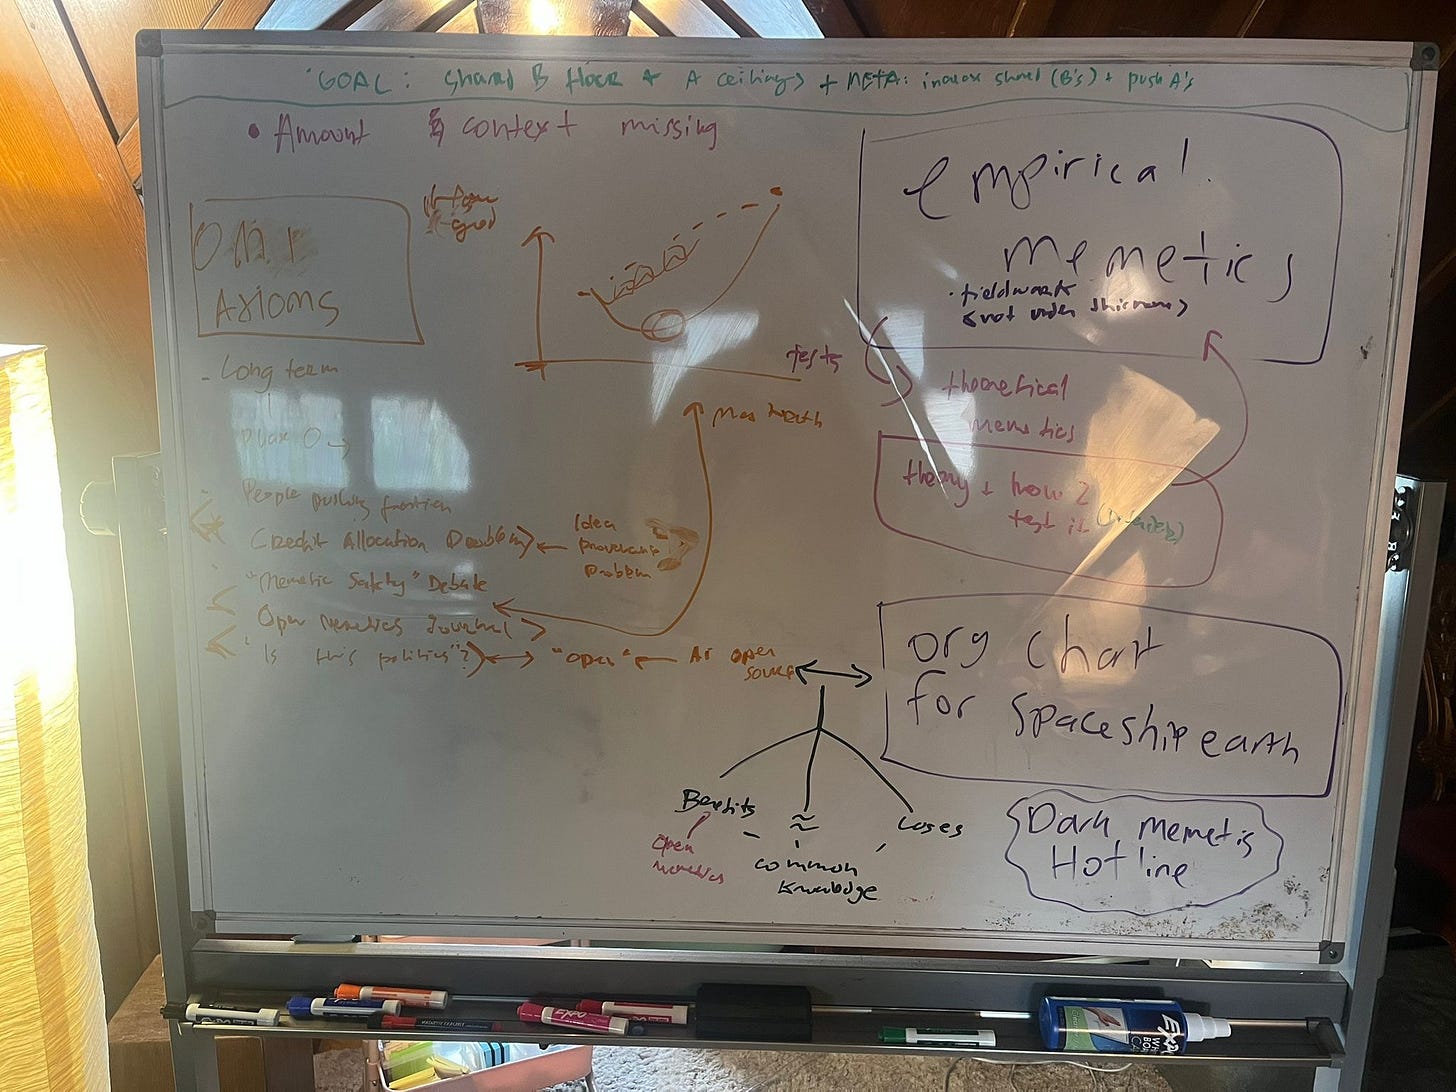 GOAL: shared B floor + A ceilings + META: increase shared (B's) + push A's
• Amount context missing
OMI
AXIOMS
good
tests
- Long term
Phase 0 →
People pushing frontier
Credit Allocation Problem
Idea
provenance
problem
"Memetic Safety" Debate
Open Memetics Journal
"Is this politics"?
"open"
AI open
source
empirical
memetics
• fieldwork
theoretical
memetics
theory + how 2
test it
org chart
for spaceship earth
Benefits
Open
memetics
≈
common
knowledge
Loses
Dark memetis
Hotline
EXPO
EXPO